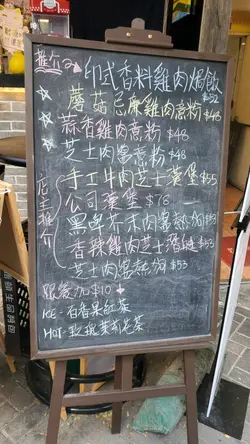 推介
印式香料雞肉焗飯
$52
蘑菇忌廉雞肉意粉 $48
蒜香雞肉意粉 $48
芝士肉醬意粉 $48
店主推介
手工牛肉芝士漢堡 $55
公司漢堡 $76
黑啤芥末肉醬熱狗 $53
香辣雞肉芝士 $53
芝士肉醬熱狗 $53
跟餐加 $10
ICE: 百香果紅茶
HOT: 玫瑰茉莉花茶